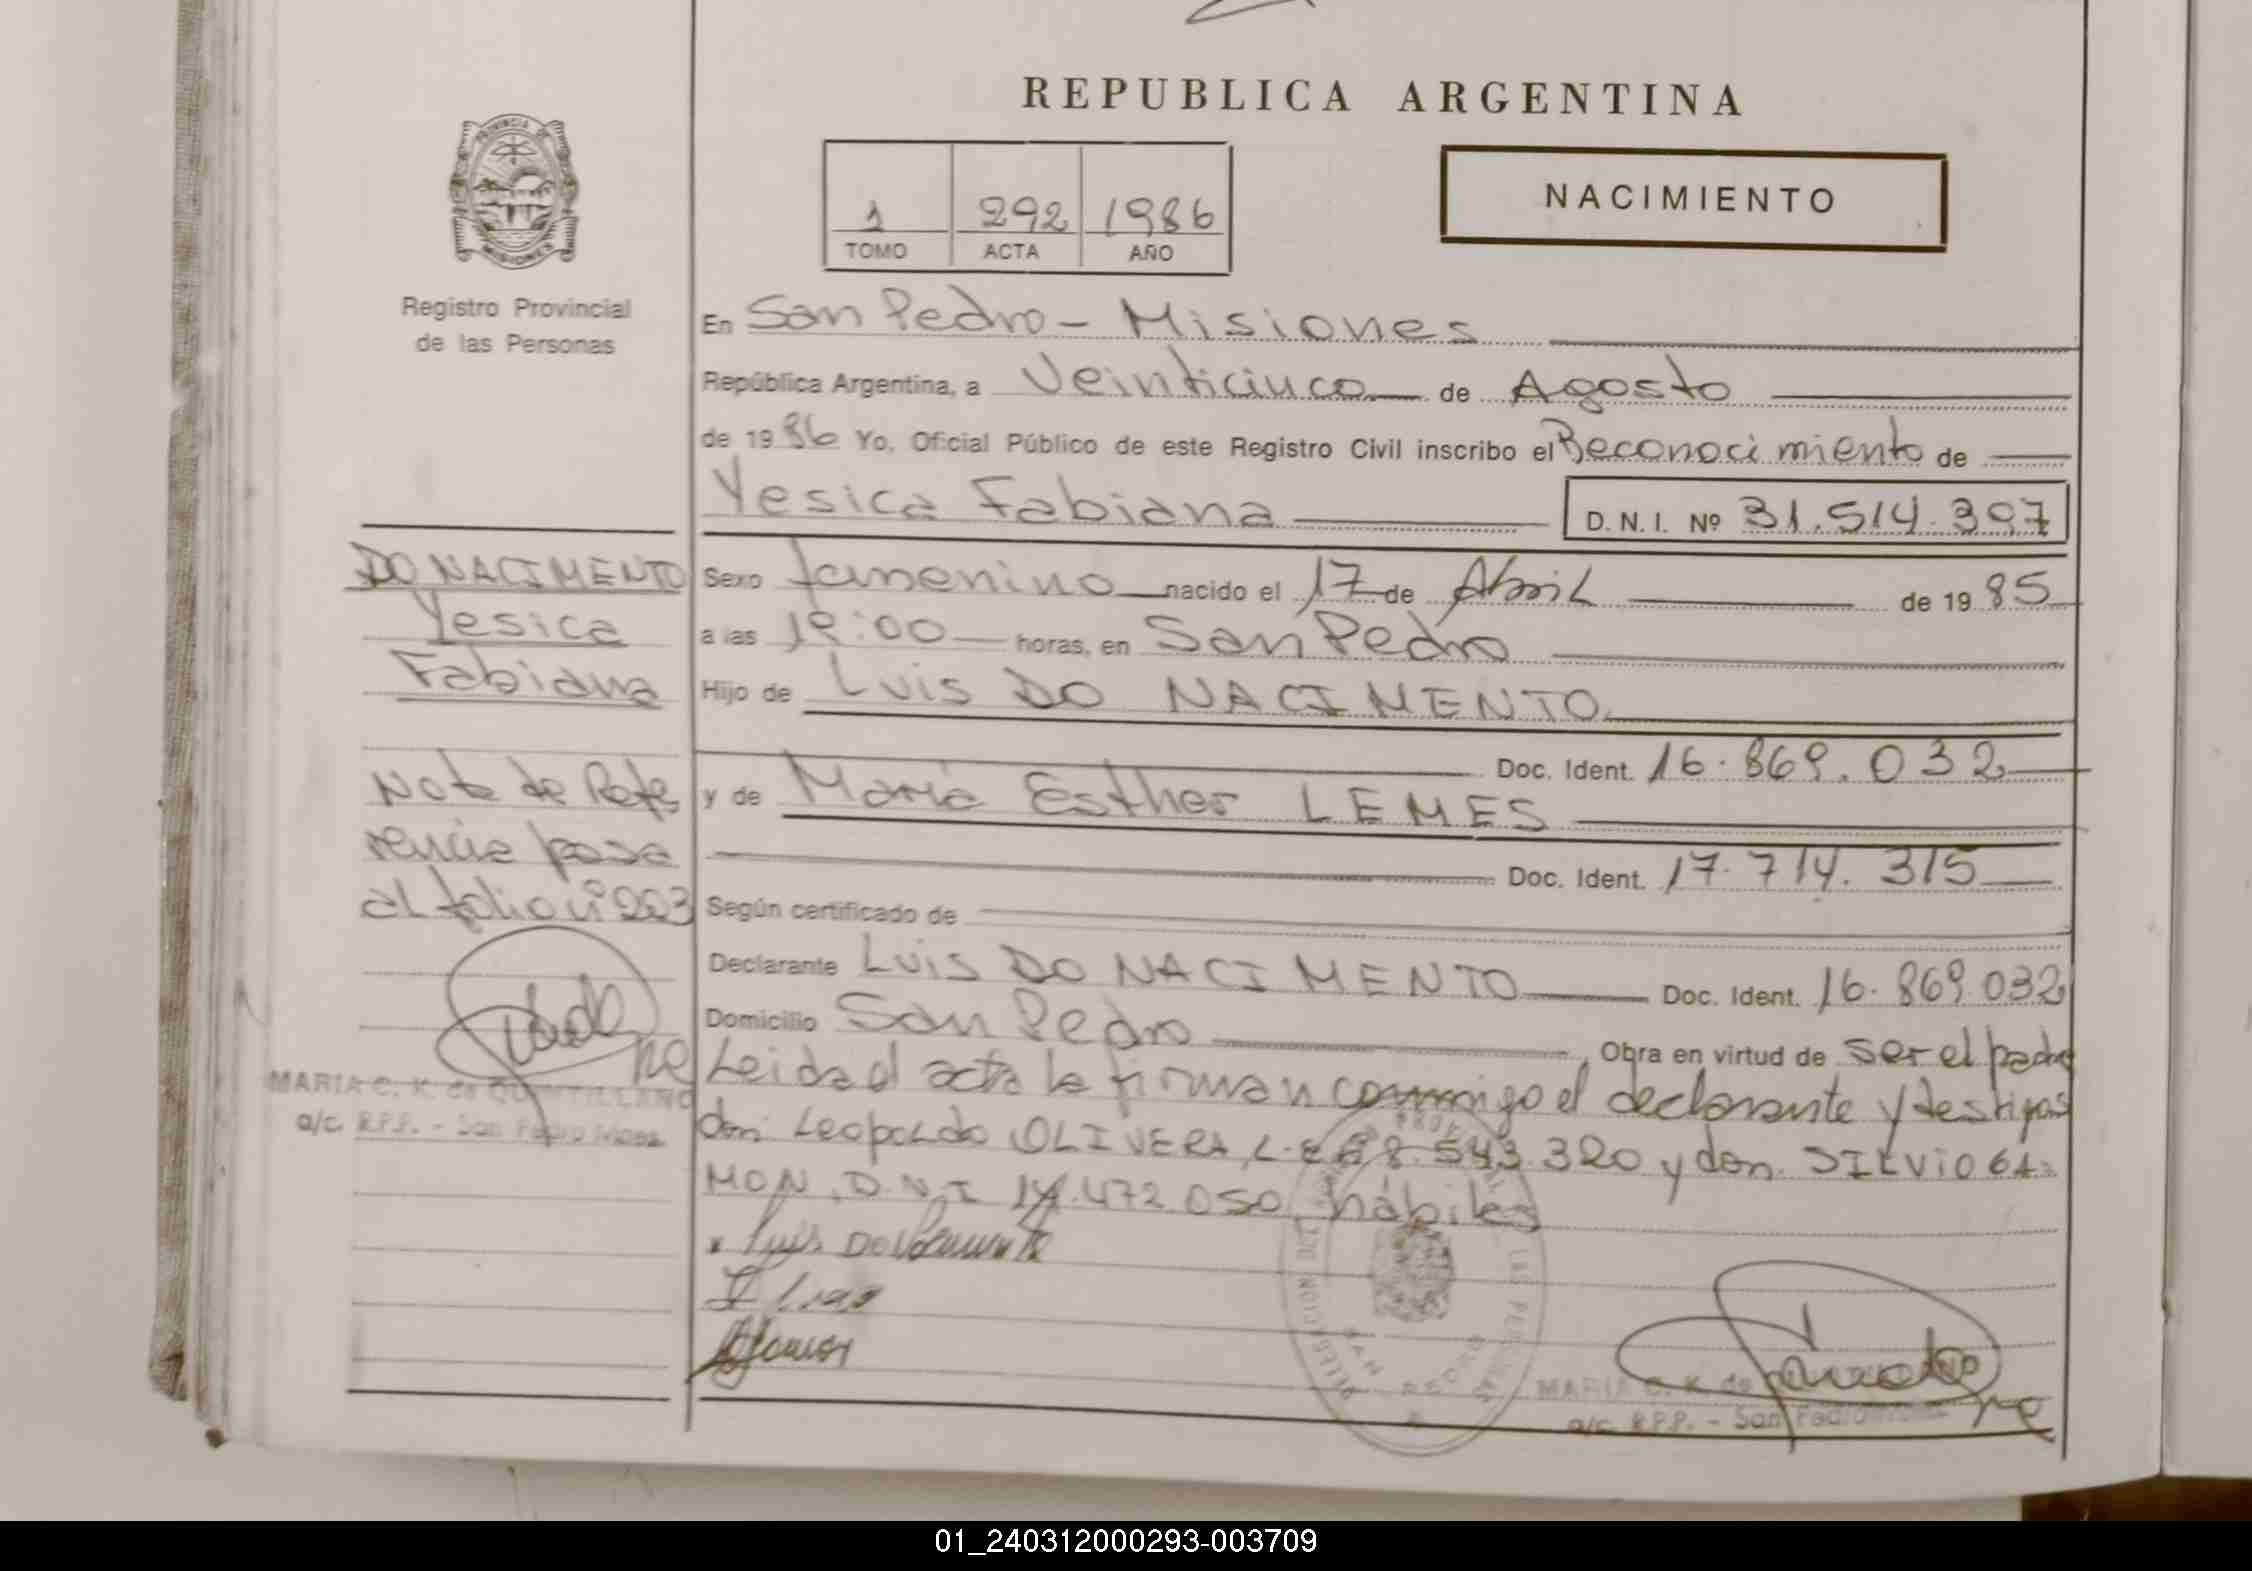 REPUBLICA ARGENTINA
PROVINCIA DE MISIONES
Registro Provincial
de las Personas
1 292 1986
TOMO ACTA AÑO
NACIMIENTO
En San Pedro - Misiones
República Argentina, a Veinticinco de Agosto
de 1986 Yo, Oficial Público de este Registro Civil inscribo el Reconocimiento de
Yesica Fabiana D.N.I. Nº 31.514.397
DO NACIMENTO
Yesica
Fabiana
Nota de Refe
rencia pasa
al folio nº 203
MARIA C. K. de QUINTILLANO
a/c. R.P.P. - San Pedro Mnes.
Sexo femenino nacido el 17 de Abril de 1985
a las 19:00 horas, en San Pedro
Hijo de Luis DO NACIMENTO
Doc. Ident. 16.869.032
y de María Esther LEMES
Doc. Ident. 17.714.315
Según certificado de
Declarante Luis DO NACIMENTO Doc. Ident. 16.869.032
Domicilio San Pedro, Obra en virtud de ser el padre
Leida el acta la firman conmigo el declarante y testigos
don Leopoldo OLIVERA, L.E. 8.543.320 y don SILVIO
MON, D.N.I 14.472.050 hábiles
Luis Do
SAN PEDRO
MARIA C. K. de
a/c. R.P.P. - San Pedro
01_240312000293-003709